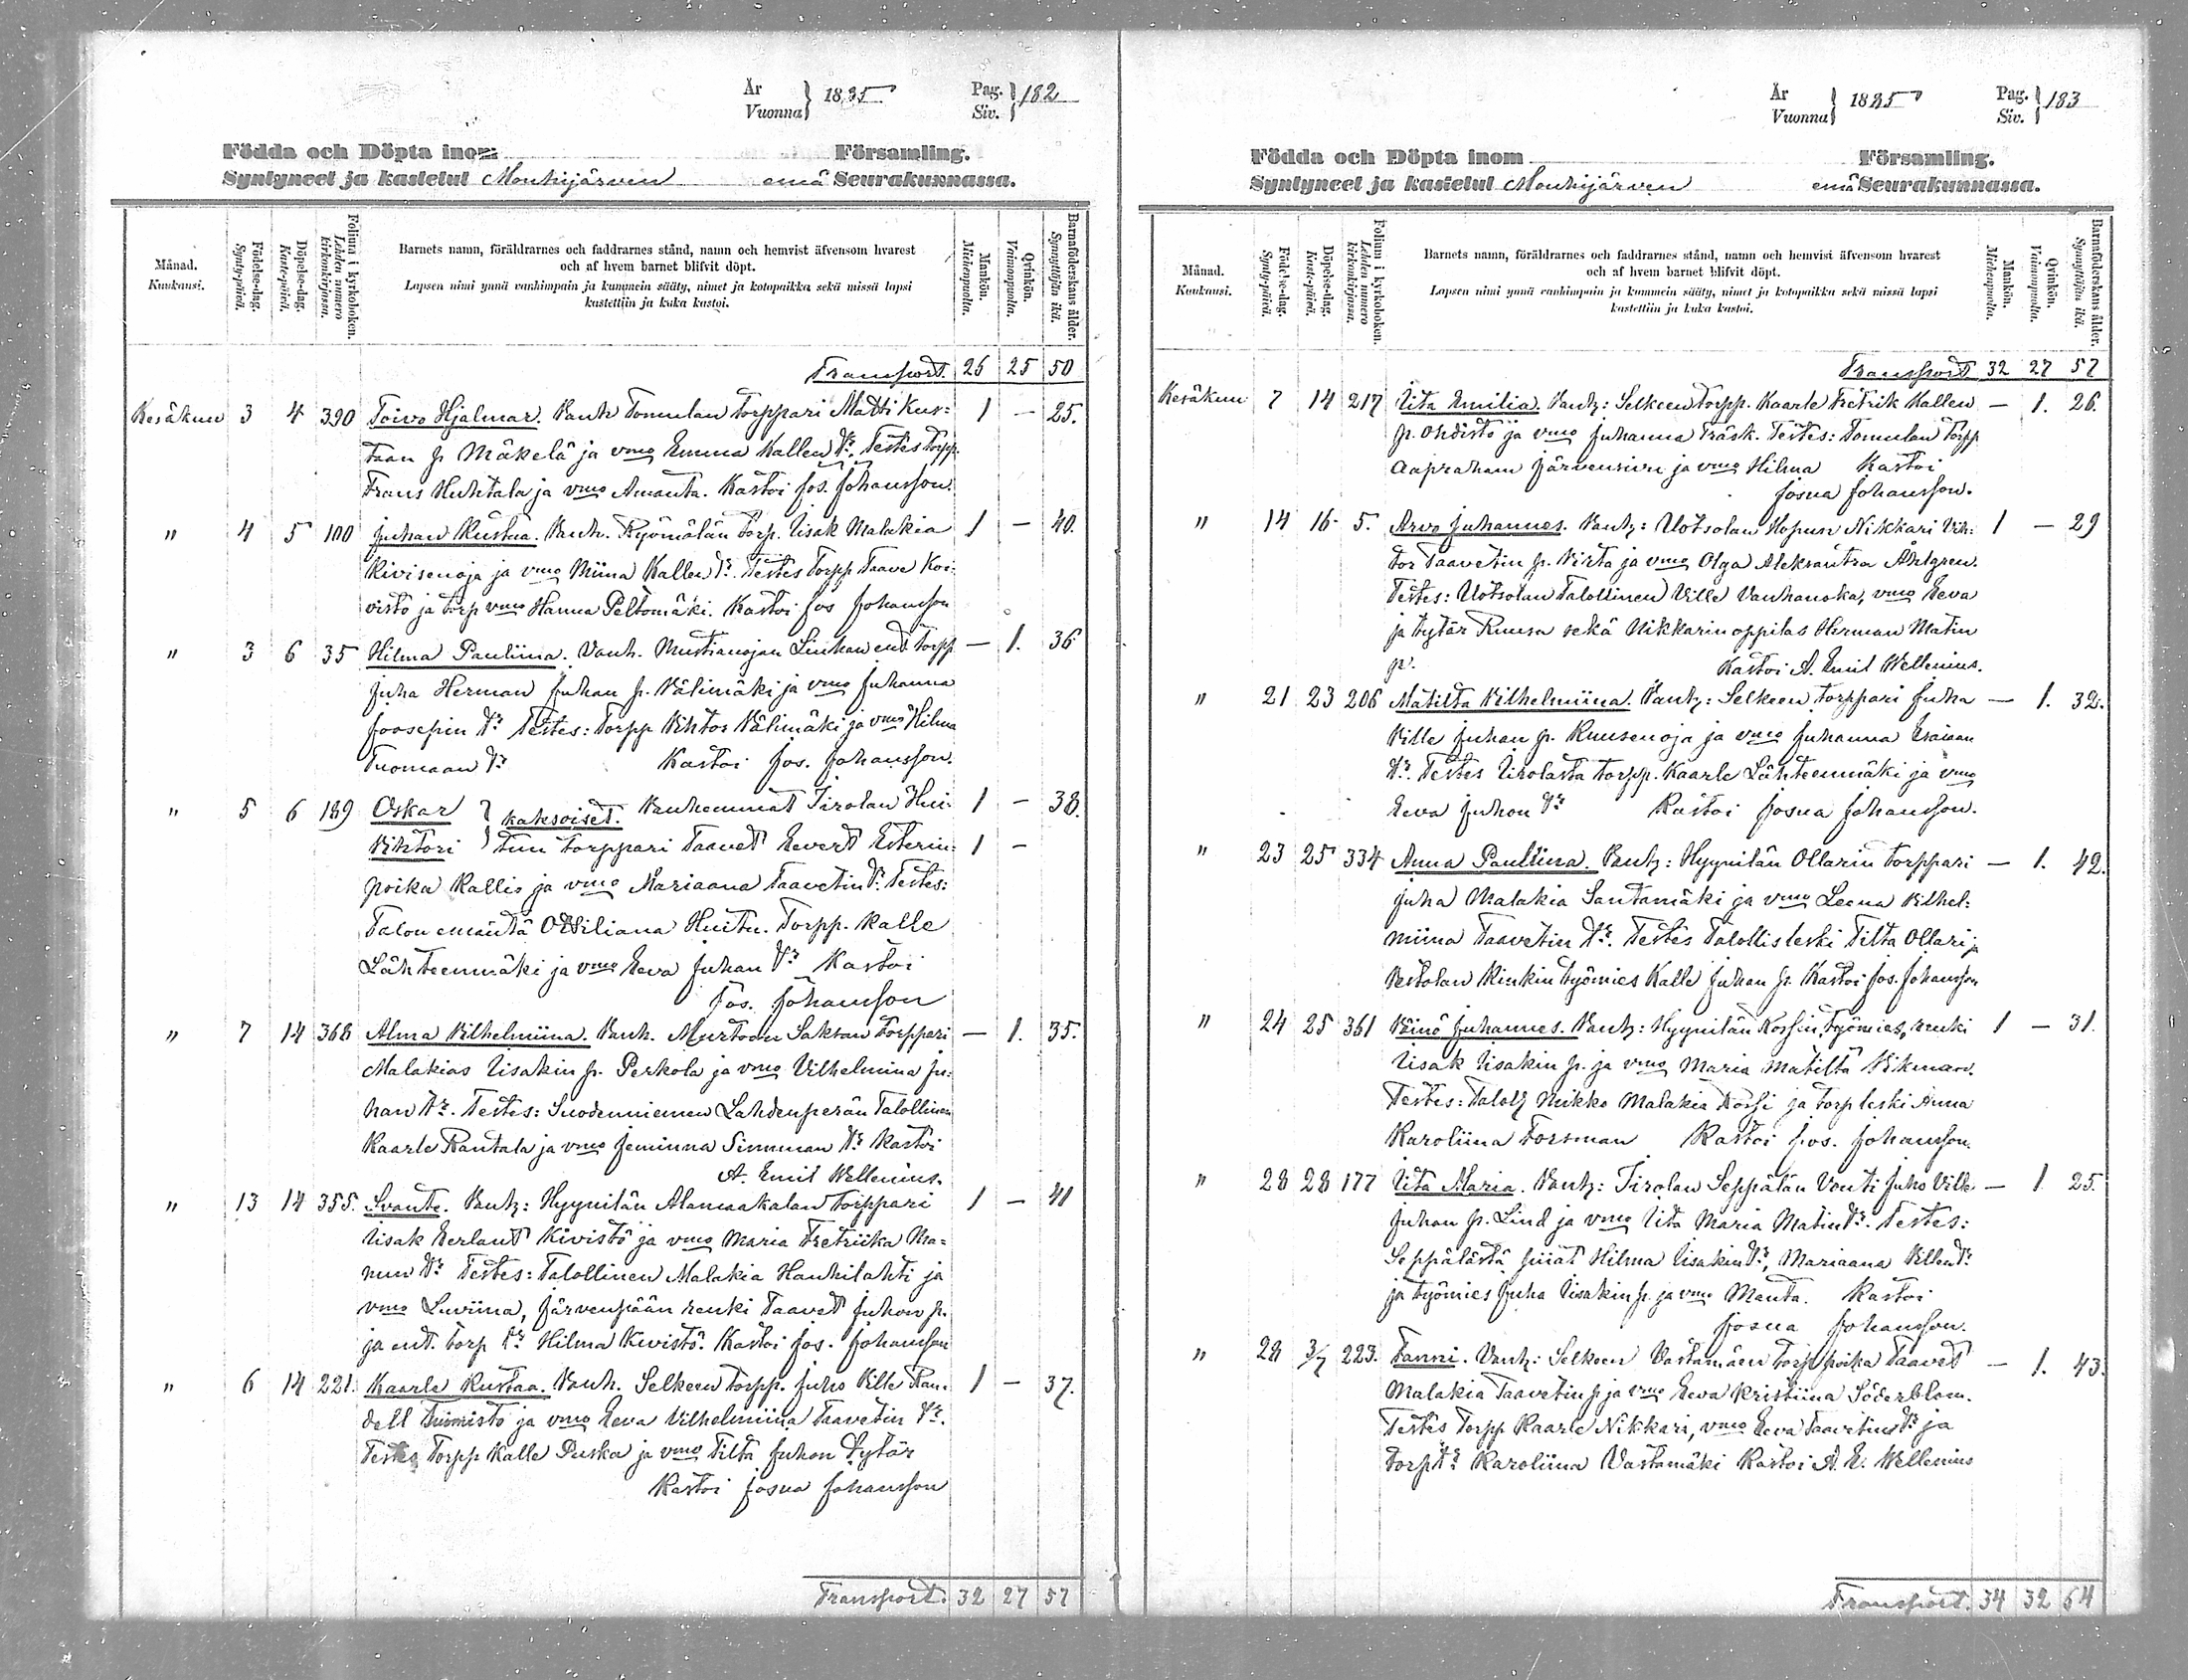 År
Vuonna } 1895
Pag.
Siv. } 182
Födda och Döpta inom Församling.
Syntyneet ja kastetut Mouhijärven emä Seurakunnassa.
Månad.
Kuukausi.
Födelse-dag.
Synty-päivä.
Döpelse-dag.
Kaste-päivä.
Folium i kyrkoboken.
Lehden numero kirkonkirjassa.
Barnets namn, föräldrarnes och faddrarnes stånd, namn och hemvist äfvensom hvarest
och af hvem barnet blifvit döpt.
Lapsen nimi ynnä vanhimpain ja kummein sääty, nimet ja kotopaikka sekä missä lapsi
kastettiin ja kuka kastoi.
Mankön.
Miehenpuolta.
Qvinkön.
Vaimonpuolta.
Barnaföderskans ålder.
Synnyttäjän ikä.
Transport. 26 25 50
Kesäkuu 3 4 390 Toivo Hjalmar. Vanh Tomulan Torppari Matti Kus- 1 — 25.
taan p. Mäkelä ja vmo Emma Kallen tr. Testes Torpp.
Frans Huhtala ja vmo Amanta. Kastoi Jos. Johansson.
" 4 5 100 Juhan Kustaa. Vanh. Ryömälän torp. Iisak Malakia 1 — 40.
Kivisenoja ja vmo Miina Kallen tr. Testes Torpp Taave Koi-
visto ja torp vmo Hanna Peltomäki. Kastoi Jos Johansson
" 3 6 35 Hilma Pauliina. Vanh. Mustianojan Linhan ent torpp — 1. 36
Juha Herman Juhan p. Välimäki ja vmo Juhanna
Joosepin tr Testes: Torpp Vihtor Välimäki ja vmo Hilma
Tuomaan tr Kastoi Jos. Johansson.
" 5 6 189 Oskar } kaksoiset. Vanhemmat Tirolan Hui- 1 — 38.
Vihtori } tun torppari Taavet Eevert Esterin- 1 —
poika Kallio ja vmo Mariaana Taavetin tr. Testes:
Talon emäntä Ottiliana Huitu. Torpp. Kalle
Lähteenmäki ja vmo Eeva Juhan tr Kastoi
Jos. Johansson
" 7 14 368 Alma Vilhelmiina. Vanh. Murtoon Saksan Torppari — 1. 35.
Malakias Iisakin p. Perkola ja vmo Vilhelmina Ju-
han tr. Testes: Suodenniemen Lahdenperän Talollinen
Kaarle Rantala ja vmo Jeminna Simunan tr Kastoi
A. Emil Wellenius.
" 13 14 355. Svante. Vanh: Hyynilän Alamaakalan torppari 1 — 41
Iisak Eerlant Kivistö ja vmo Maria Fretriika Ma-
nun tr Testes: Talollinen Malakia Hauhilahti ja
vmo Luviina, Järvenpään renki Taavet Juhan p.
ja ent. torp tr Hilma Kivistö. Kastoi Jos. Johansson
" 6 14 221. Kaarle Kustaa. Vanh. Selkeen Torpp. Juho Ville Ran- 1 — 37.
dell Tuomisto ja vmo Eeva Vilhelmiina Taavetin tr.
Testes Torpp Kalle Puska ja vmo Tilta Juhon tytär
Kastoi Josua Johansson
Transport. 32 27 57
År
Vuonna } 1895
Pag.
Siv. } 183
Födda och Döpta inom Församling.
Syntyneet ja kastetut Mouhijärven emä Seurakunnassa.
Månad.
Kuukausi.
Födelse-dag.
Synty-päivä.
Döpelse-dag.
Kaste-päivä.
Folium i kyrkoboken.
Lehden numero kirkonkirjassa.
Barnets namn, föräldrarnes och faddrarnes stånd, namn och hemvist äfvensom hvarest
och af hvem barnet blifvit döpt.
Lapsen nimi ynnä vanhimpain ja kummein sääty, nimet ja kotopaikka sekä missä lapsi
kastettiin ja kuka kastoi.
Mankön.
Miehenpuolta.
Qvinkön.
Vaimonpuolta.
Barnaföderskans ålder.
Synnyttäjän ikä.
Transport 32 27 57
Kesäkuu 7 14 217 Iita Emilia. Vanh: Selkeen torpp. Kaarle Fretrik Kallen — 1. 26.
p. Ohdisto ja vmo Juhanna Träsk. Testes: Tomulan Torpp
Aapraham Järvensivu ja vmo Hilma Kastoi
Josua Johansson.
" 14 16 5. Arvo Juhannes. Vanh: Uotsolan Hopun Nikkari Vih- 1 — 29
tor Taavetin p. Virta ja vmo Olga Aleksantra Åhlgren.
Testes: Uotsolan Talollinen Ville Vanhanoka, vmo Eeva
ja tytär Ruusa sekä Nikkarinoppilas Herman Matin
p. Kastoi A. Emil Wellenius.
" 21 23 206 Matilta Vilhelmiina. Vanh: Selkeen torppari Juha — 1. 32.
Ville Juhan p. Ruusenoja ja vmo Juhanna Esaiaan
tr. Testes Tirolasta torpp. Kaarle Lähteenmäki ja vmo
Eeva Juhon tr Kastoi Josua Johansson.
" 23 25 334 Anna Pauliina. Vanh: Hyynilän Ollarin torppari — 1. 42.
Juha Malakia Santamäki ja vmo Leena Vilhel-
miina Taavetin tr. Testes Talollisleski Tilta Ollari ja
Vestolan Kinkin työmies Kalle Juhan p. Kastoi Jos. Johansson
" 24 25 361 Väinö Juhannes. Vanh: Hyynilän Kossin, työmies, renki 1 — 31.
Iisak Iisakin p. ja vmo Maria Matilta Vikman.
Testes: Taloll Mikko Malakia Kossi ja torp leski Anna
Karoliina Forsman Kastoi Jos. Johansson.
" 28 28 177 Iita Maria. Vanh: Tirolan Seppälän Vouti Juho Ville — 1 25.
Juhan p. Lind ja vmo Iita Maria Matin tr. Testes:
Seppälästä piiat Hilma Iisakin tr, Mariaana Villen tr
ja työmies Juha Iisakin p. ja vmo Manta. Kastoi
Josua Johansson.
" 28 3/7 223. Fanni. Vanh: Selkeen Vastamäen Torp poika Taavet — 1. 43.
Malakia Taavetin p ja vmo Eeva Kristiina Söderblom.
Testes Torpp Kaarle Nikkari, vmo Eeva Taavetin tr ja
torp tr Karoliina Vastamäki Kastoi A. E. Wellenius
Transport. 34 32 64